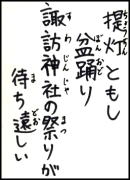 提灯ともし
盆踊り
諏訪神社の祭りが
待ち遠しい